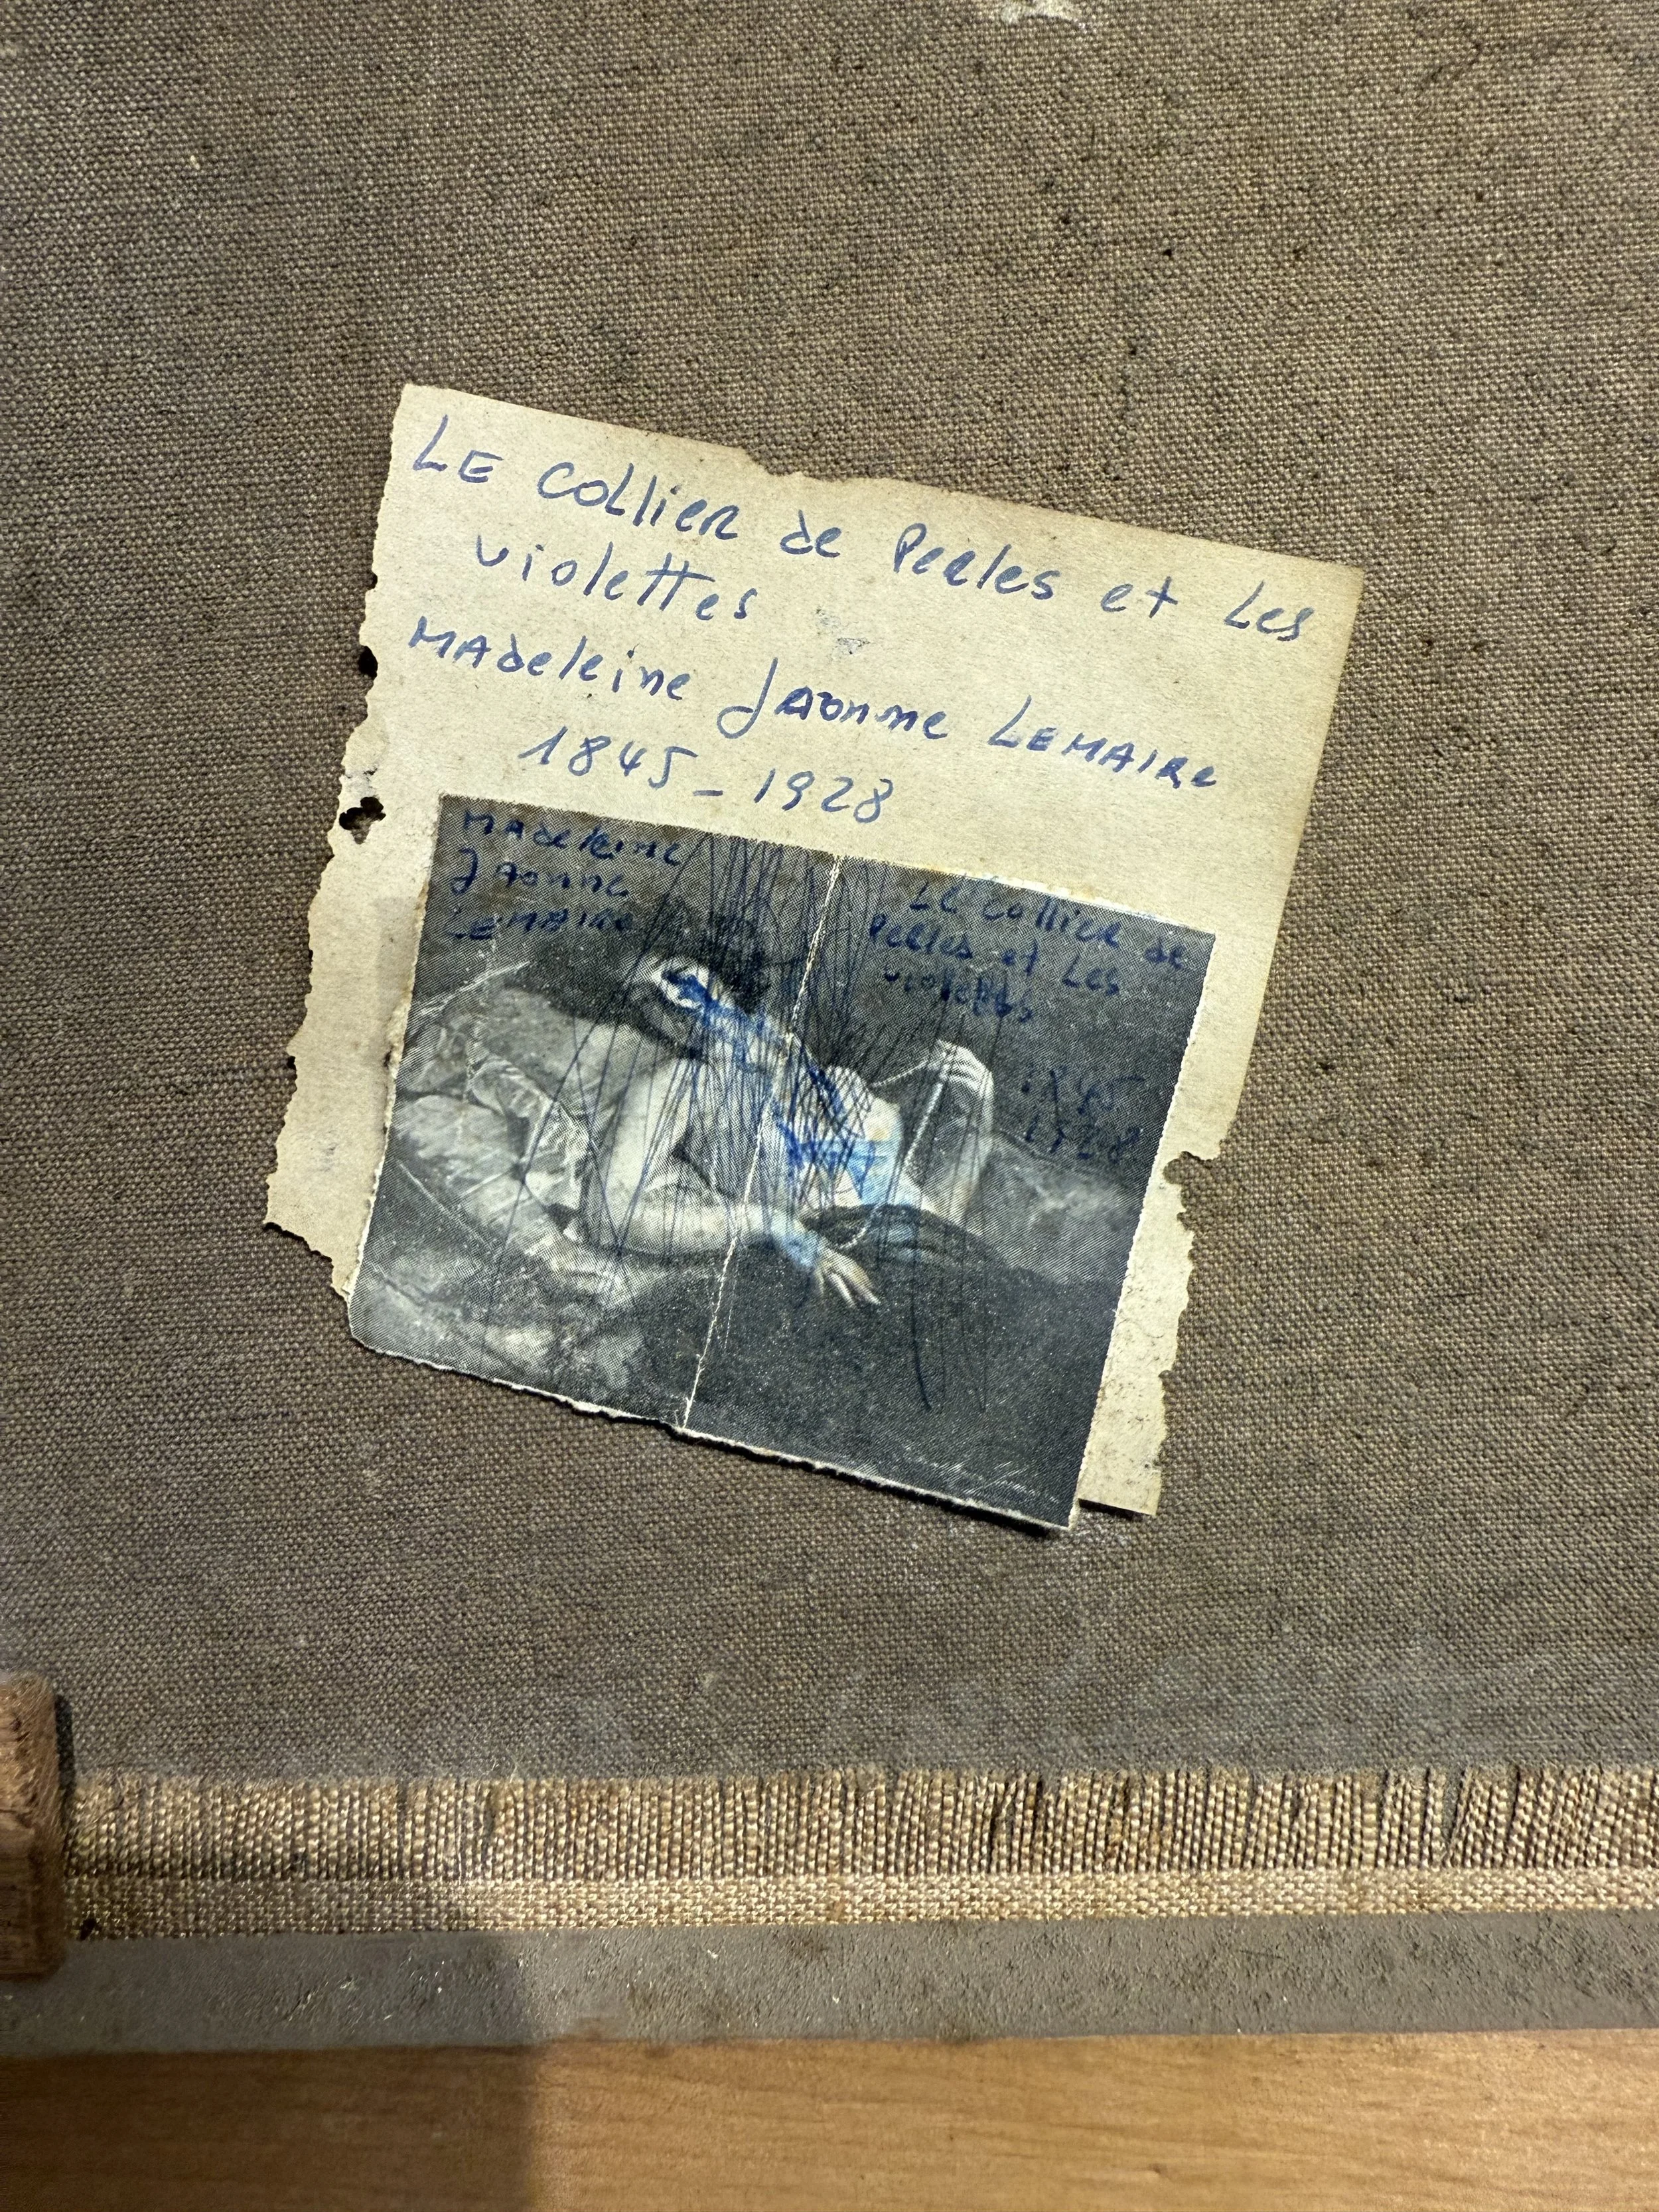 LE Collier de Perles et Les
violettes
MAdeleine JAonne LEMAIRE
1845-1928
MAdeleine
JAonne
LEMAIRE
Le Collier de
Perles et Les
violettes
1845
1928